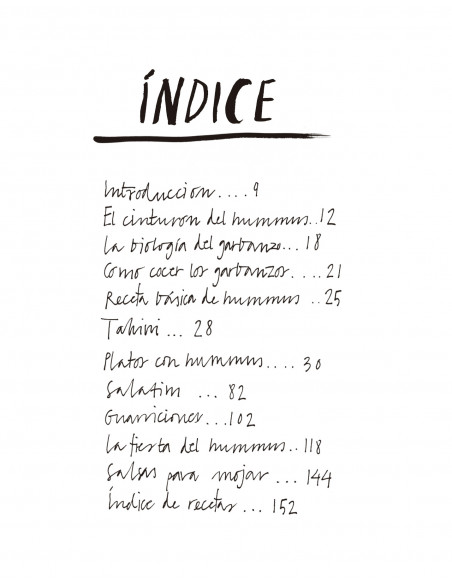 ÍNDICE
Introduccion....9
El cinturon del hummus..12
La biología del garbanzo...18
Como cocer los garbanzos....21
Receta básica de hummus ..25
Tahini ... 28
Platos con hummus.... 30
Salatim ... 82
Guarniciones...102
La fiesta del hummus..118
Salsas para mojar ... 144
Índice de recetas ... 152